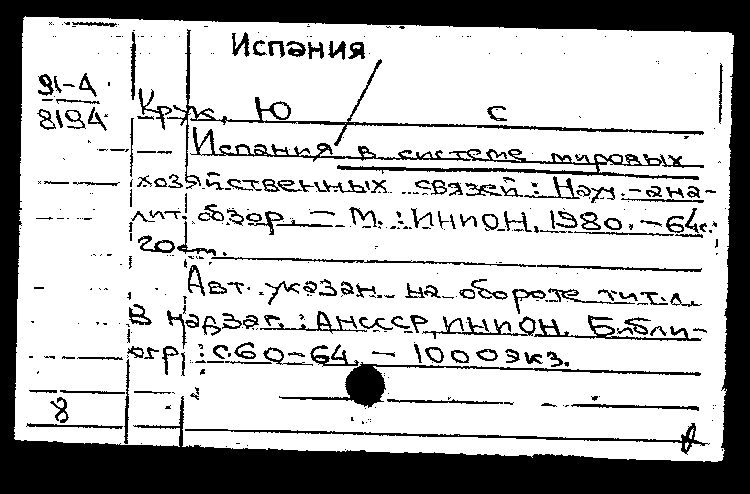 Испания
91-4
8194
Крук, Ю С
Испания в системе мировых
хозяйственных связей : Науч.-ана-
лит. обзор. — М. : ИНИОН, 1980. — 64с.;
20см.
Авт. указан на обороте тит.л.
В надзаг. : АН СССР, ИНИОН. Библи-
огр. : с.60-64. — 1000экз.
8